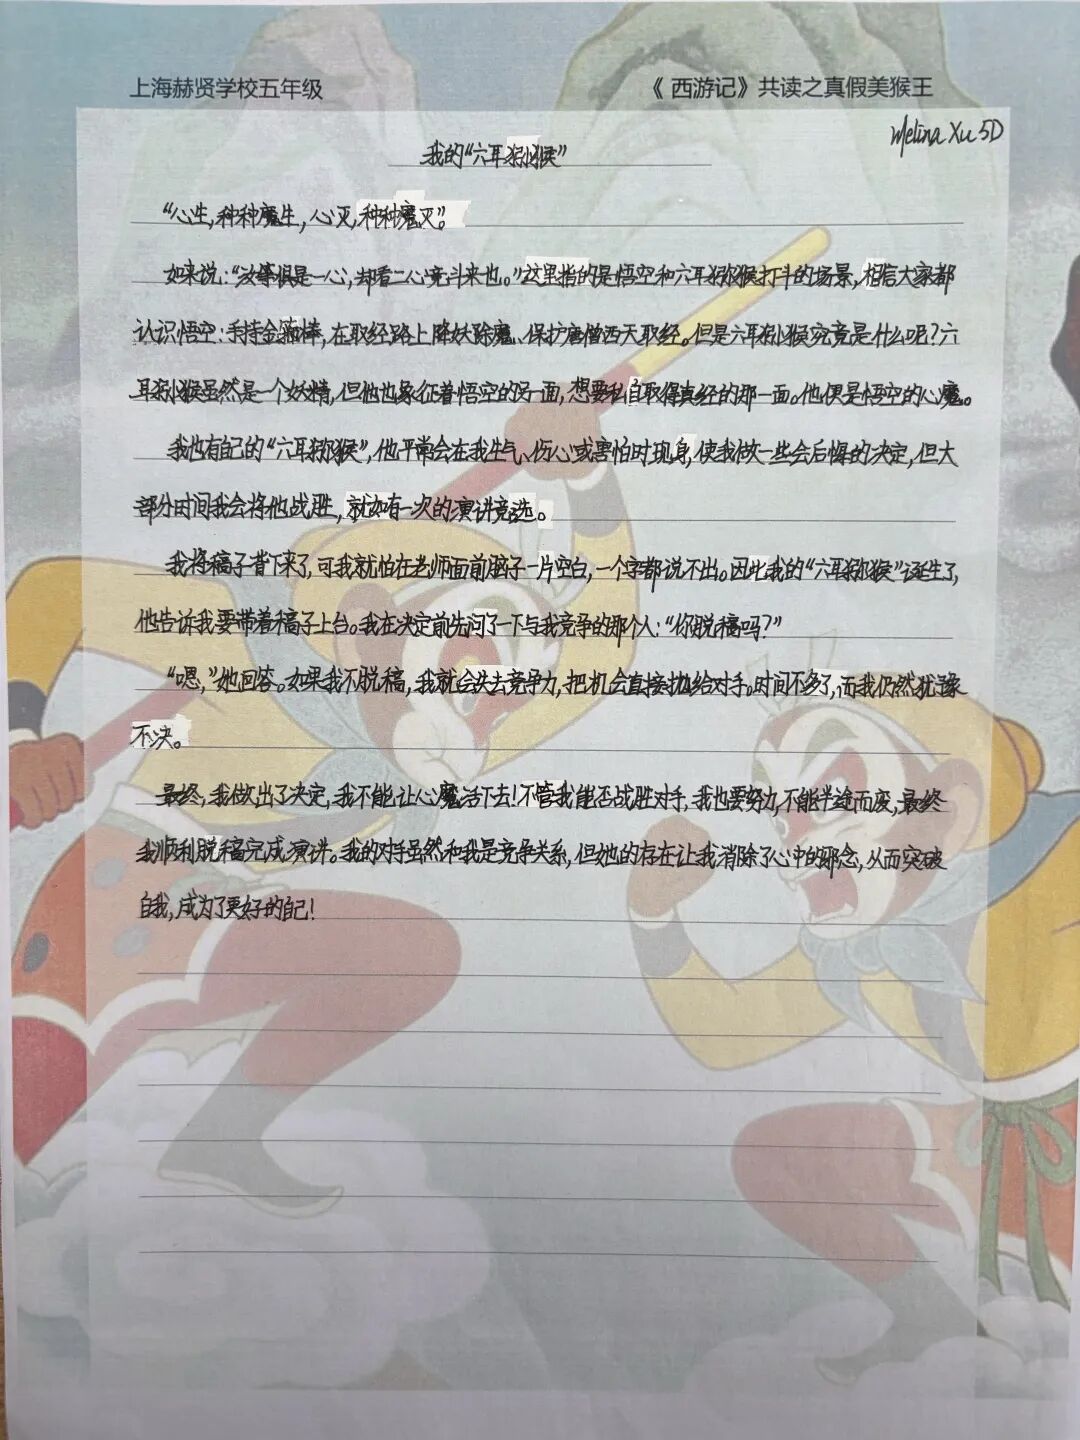 上海赫贤学校五年级
《西游记》共读之真假美猴王
Melina Xu 5D
我的“六耳猕猴”
“心生,种种魔生,心灭,种种魔灭”。
如来说:“汝等俱是一心,却看二心竞斗来也。”这里指的是悟空和六耳猕猴打斗的场景,相信大家都
认识悟空:手持金箍棒,在取经路上降妖除魔、保护唐僧西天取经。但是六耳猕猴究竟是什么呢?六
耳猕猴虽然是一个妖精,但他也象征着悟空的另一面,想要私自取得真经的那一面。他便是悟空的心魔。
我也有自己的“六耳猕猴”,他平常会在我生气、伤心或害怕时现身,使我做一些会后悔的决定,但大
部分时间我会将他战胜,就如有一次的演讲竞选。
我将稿子背下来了,可我就怕在老师面前脑子一片空白,一个字都说不出。因此我的“六耳猕猴”诞生了,
他告诉我要带着稿子上台。我在决定前先问了一下与我竞争的那个人:“你脱稿吗?”
“嗯,”她回答。如果我不脱稿,我就会失去竞争力,把机会直接抛给对手。时间不多了,而我仍然犹豫
不决。
最终,我做出了决定,我不能让心魔活下去!不管我能否战胜对手,我也要努力,不能半途而废,最终
我顺利脱稿完成演讲。我的对手虽然和我是竞争关系,但她的存在让我消除了心中的邪念,从而突破
自我,成为了更好的自己!